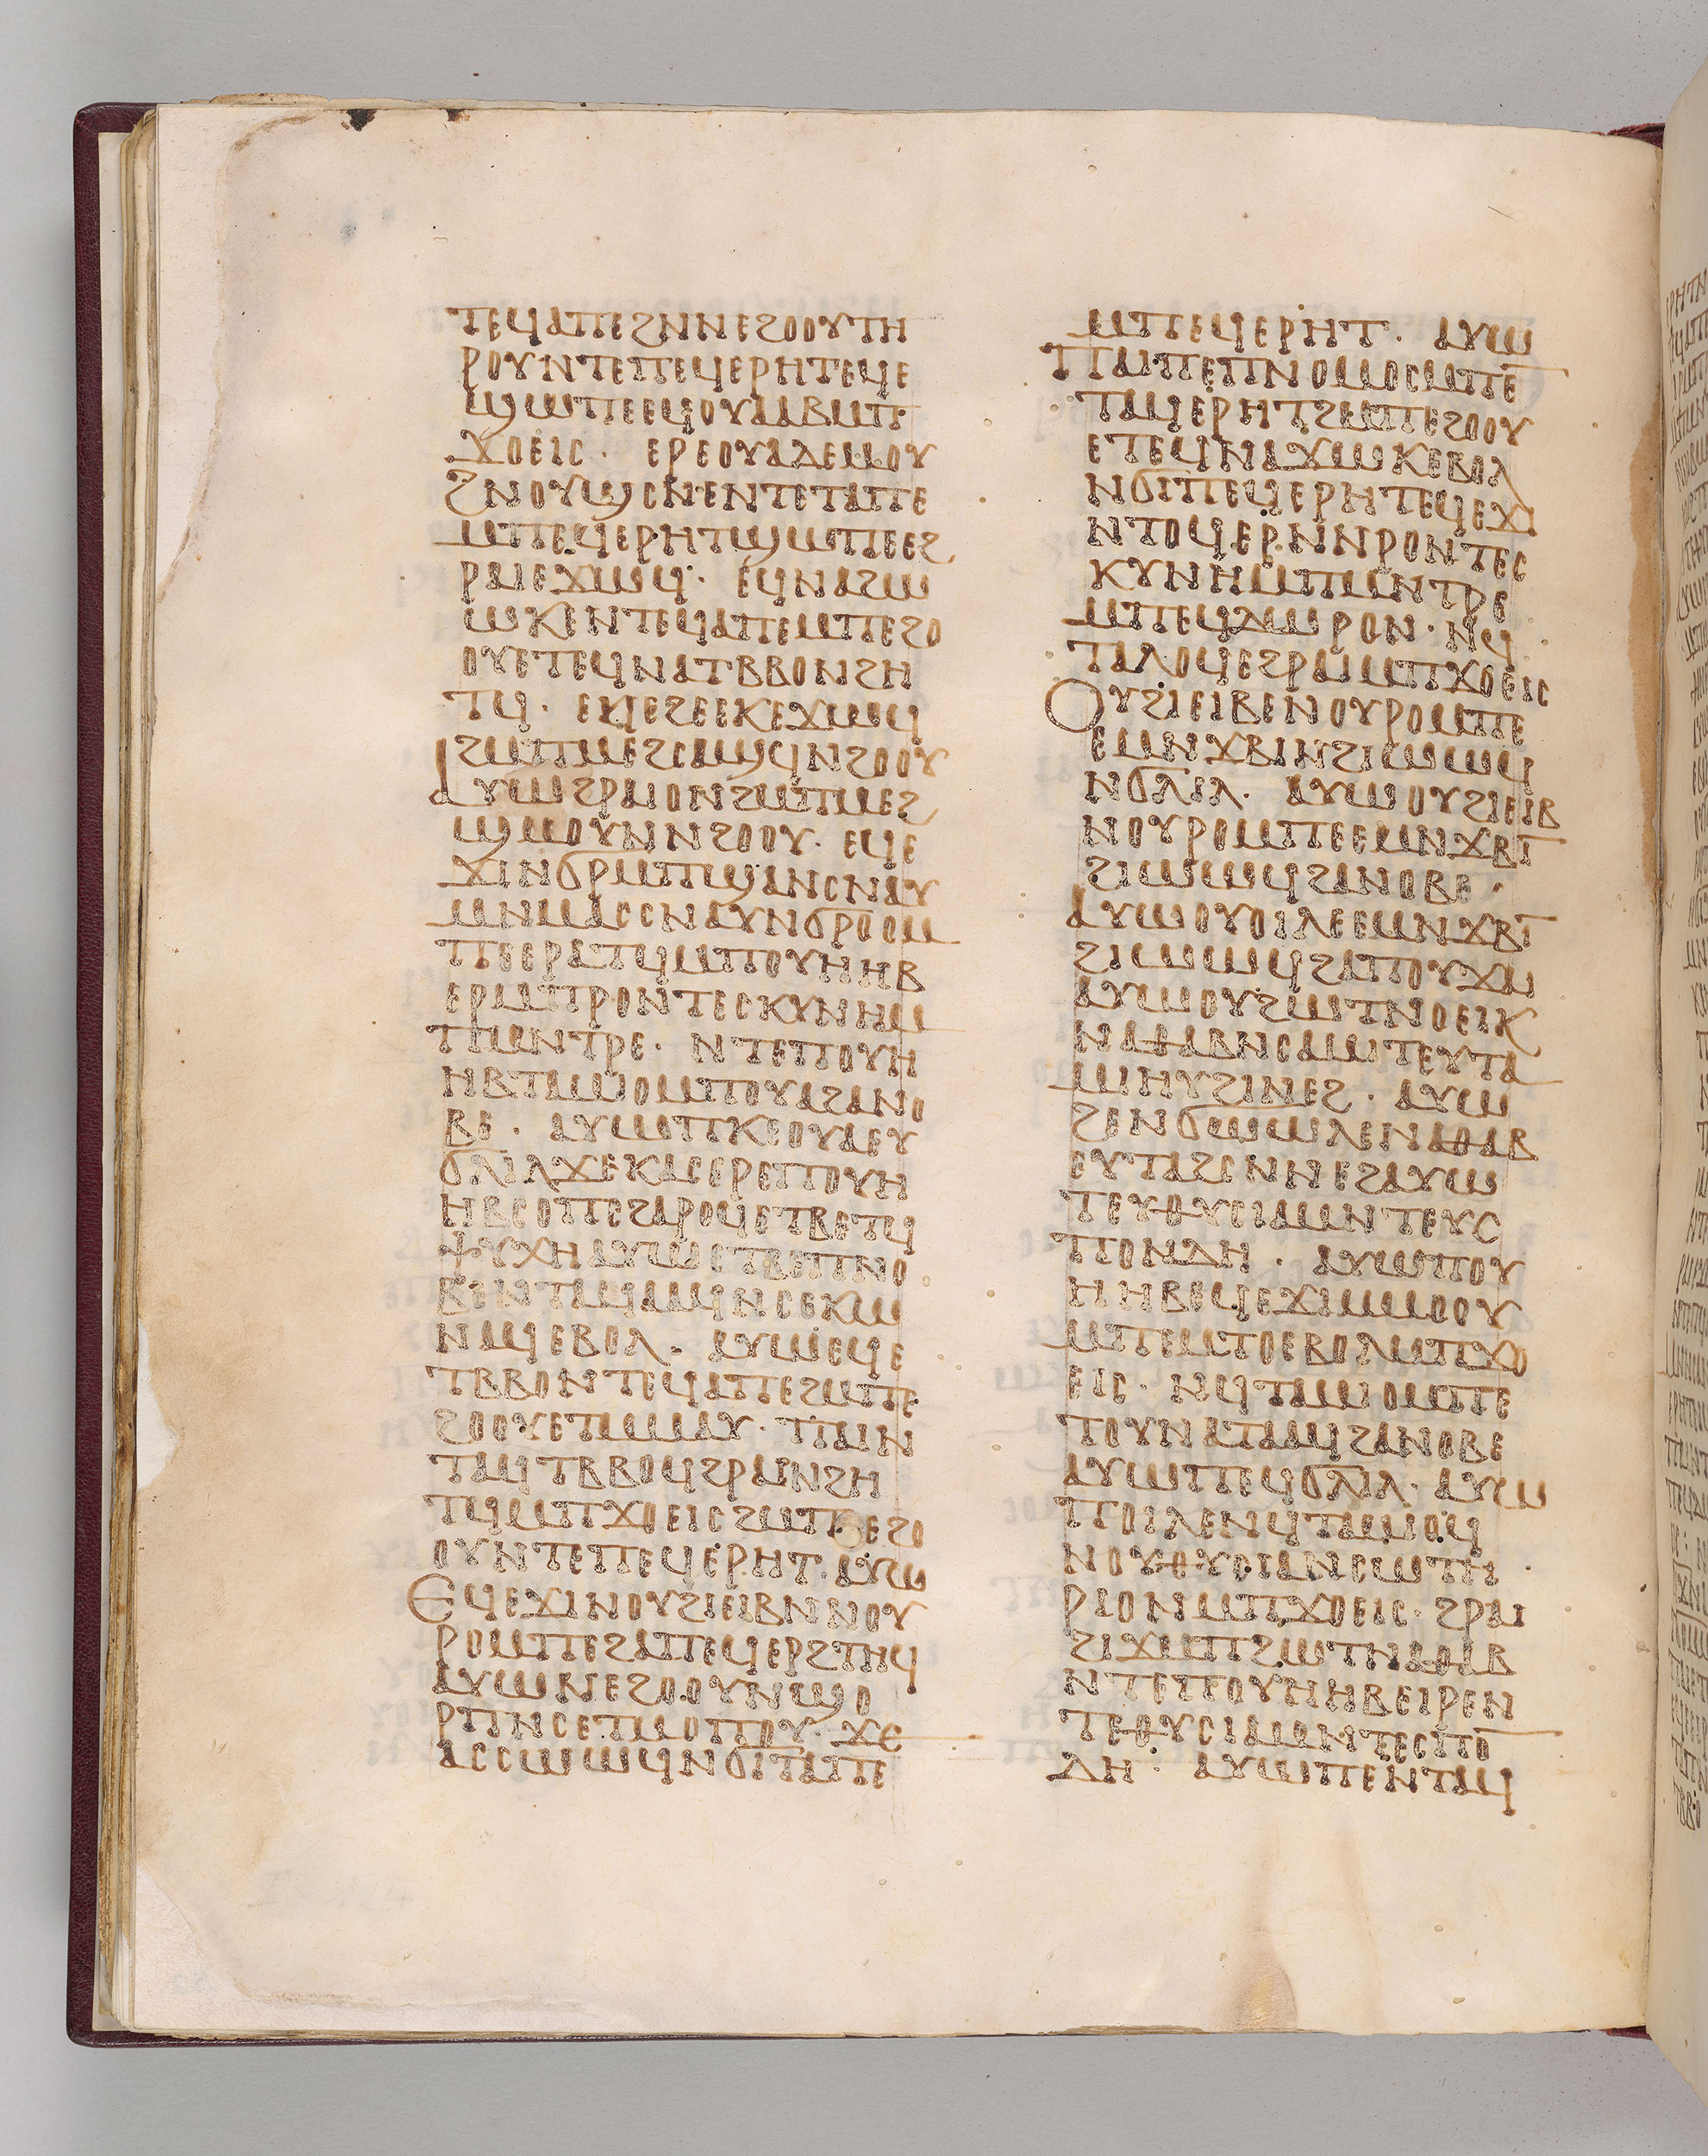 ⲧⲉϥⲁⲡⲉϩⲛⲛⲉϩⲟⲟⲩⲧⲏ
ⲣⲟⲩⲛⲧⲉⲡⲉϥⲉⲣⲏⲧⲉϥⲉ
ϣⲱⲡⲉⲉϥⲟⲩⲁⲁⲃⲙⲡ
ϫⲟⲉⲓⲥ· ⲉⲣⲉⲟⲩⲁⲇⲉⲙⲟⲩ
ϩⲛⲟⲩϣⲥⲛⲉⲛⲧⲉⲧⲁⲡⲉ
ⲙⲡⲉϥⲉⲣⲏⲧϣⲱⲡⲉⲉϩ
ⲣⲁⲓⲉϫⲱϥ· ⲉϥⲛⲁϩⲱ
ⲱⲕⲉⲛⲧⲉϥⲁⲡⲉⲙⲡⲉϩⲟ
ⲟⲩⲉⲧⲉϥⲛⲁⲧⲃⲃⲟⲛϩⲏ
ⲧϥ· ⲉϥⲉϩⲉⲉⲕⲉϫⲱϥ
ϩⲙⲡⲙⲉϩⲥⲁϣϥⲛϩⲟⲟⲩ
ⲁⲩⲱϩⲣⲁⲓⲟⲛϩⲙⲡⲙⲉϩ
ϣⲙⲟⲩⲛⲛϩⲟⲟⲩ· ⲉϥⲉ
ϫⲓⲛϭⲣⲙⲡϣⲁⲛⲥⲛⲁⲩ
ⲙⲛⲙⲁⲥⲥⲛⲁⲩⲛϭⲣⲟⲟⲙ
ⲡⲉⲉⲣⲁⲧϥⲙⲡⲟⲩⲏⲏⲃ
ⲉⲣⲙⲡⲣⲟⲛⲧⲉⲥⲕⲩⲛⲏⲙ
ⲡⲙⲛⲧⲣⲉ· ⲛⲧⲉⲡⲟⲩⲏ
ⲏⲃⲧⲁⲙⲓⲟⲙⲡⲟⲩⲁϩⲁⲛⲟ
ⲃⲉ· ⲁⲩⲱⲡⲕⲉⲟⲩⲁⲉⲩ
ϭⲗⲓⲗϫⲉⲕⲁⲥⲉⲣⲉⲡⲟⲩⲏ
ⲏⲃⲥⲟⲡⲥϩⲁⲣⲟϥⲉⲧⲃⲉⲧϥ
ⲯⲩⲭⲏⲁⲩⲱⲉⲧⲃⲉⲡⲛⲟ
ⲃⲉⲛⲧⲁϥⲁⲁϥⲛⲥⲉⲕⲱ
ⲛⲁϥⲉⲃⲟⲗ· ⲁⲩⲱⲉϥⲉ
ⲧⲃⲃⲟⲛⲧⲉϥⲁⲡⲉϩⲙⲡⲉ
ϩⲟⲟⲩⲉⲧⲙⲙⲁⲩ· ⲡⲁⲓⲛ
ⲧⲁϥⲧⲃⲃⲟϥϩⲣⲁⲓⲛϩⲏ
ⲧϥⲙⲡϫⲟⲉⲓⲥϩⲙⲡⲉϩⲟ
ⲟⲩⲛⲧⲉⲡⲉϥⲉⲣⲏⲧ· ⲁⲩⲱ
ⲉϥⲉϫⲓⲛⲟⲩϩⲓⲉⲓⲃⲛⲛⲟⲩ
ⲣⲟⲙⲡⲉϩⲁⲡⲉϥⲉⲣϩⲧⲏϥ
ⲁⲩⲱⲛⲉϩⲟⲟⲩⲛϣⲟ
ⲣⲡⲛⲥⲉⲧⲙⲟⲡⲟⲩ· ϫⲉ
ⲁⲥⲥⲱⲱϥⲛϭⲓⲧⲁⲡⲉ
ⲙⲡⲉϥⲉⲣⲏⲧ· ⲁⲩⲱ
ⲡⲁⲓⲡⲉⲡⲛⲟⲙⲟⲥⲙⲡⲉ
ⲧⲁϥⲉⲣⲏⲧϩⲙⲡⲉϩⲟⲟⲩ
ⲉⲧⲉϥⲛⲁϫⲱⲕⲉⲃⲟⲗ
ⲛϭⲓⲡⲉϥⲉⲣⲏⲧⲉϥⲉϫⲓ
ⲛⲧⲟϥⲉⲣⲛⲛⲣⲟⲛⲧⲉⲥ
ⲕⲩⲛⲏⲙⲡⲙⲛⲧⲣⲉ
ⲙⲡⲉϥⲇⲱⲣⲟⲛ· ⲛϥ
ⲧⲁⲗⲟϥⲉϩⲣⲁⲓⲙⲡϫⲟⲉⲓⲥ
ⲟⲩϩⲓⲉⲓⲃⲉⲛⲟⲩⲣⲟⲙⲡⲉ
ⲉⲙⲛϫⲃⲓⲛϩⲓⲱⲱϥ
ⲛϭⲗⲓⲗ· ⲁⲩⲱⲟⲩϩⲓⲉⲓⲃ
ⲛⲟⲩⲣⲟⲙⲡⲉⲉⲙⲛϫⲃⲓ
ϩⲓⲱⲱϥϩⲁⲛⲟⲃⲉ·
ⲁⲩⲱⲟⲩⲟⲓⲗⲉⲉⲙⲛϫⲃⲓ
ϩⲓⲱⲱϥϩⲁⲡⲟⲩϫⲁⲓ
ⲁⲩⲱⲟⲩϩⲱⲧⲛⲟⲉⲓⲕ
ⲛⲁⲑⲁⲃⲛⲥⲁⲙⲓⲧⲉⲩⲧⲁ
ⲙⲓⲏⲩϩⲓⲛⲉϩ· ⲁⲩⲱ
ϩⲉⲛϭⲱⲱⲗⲉⲛⲁⲑⲁⲃ
ⲉⲩⲧⲁϩⲥⲛⲛⲉϩⲁⲩⲱ
ⲧⲉⲩⲑⲩⲥⲓⲁⲙⲛⲧⲉⲩⲥ
ⲡⲟⲛⲇⲏ· ⲁⲩⲱⲡⲟⲩ
ⲏⲏⲃⲉϥⲉϫⲓⲙⲙⲟⲟⲩ
ⲙⲡⲉⲙⲧⲟⲉⲃⲟⲗⲙⲡϫⲟ
ⲉⲓⲥ· ⲛϥⲧⲁⲙⲓⲟⲙⲡⲉ
ⲧⲟⲩⲛⲁⲧⲁⲁϥϩⲁⲛⲟⲃⲉ
ⲁⲩⲱⲡⲉϥϭⲗⲓⲗ· ⲁⲩⲱ
ⲡⲟⲓⲗⲉⲛϥⲧⲁⲙⲓⲟϥ
ⲛⲟⲩⲑⲩⲥⲓⲁⲛⲥⲱⲧⲏ
ⲣⲓⲟⲛⲙⲡϫⲟⲉⲓⲥ· ϩⲣⲁⲓ
ϩⲓϫⲙⲡϩⲱⲧⲛⲁⲑⲁⲃ
ⲛⲧⲉⲡⲟⲩⲏⲏⲃⲉⲓⲣⲉⲛ
ⲧⲉⲑⲩⲥⲓⲁⲙⲛⲧⲉⲥⲡⲟ
ⲇⲏ· ⲁⲩⲱⲡⲉⲛⲧⲁϥ